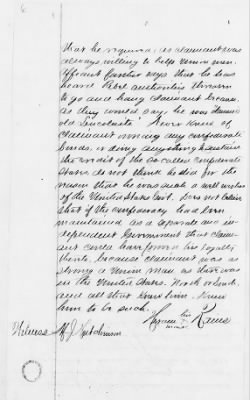 that he required, as claimant was
always willing to help Union men.
Affiant further says that he has
heard Rebel authorities threaten
to go and hang claimant because
as they would say, he was damned
old Lincolnite. Never knew of
claimant owning any confederate
bonds, or doing anything to sustain
the credit of the so called confederate
States. do not think he did for the
reason that he was such a well wisher
of the United States Govt. Does not believe
that if the confederacy had been
maintained as a separate and in-
dependent Government that claim-
ant could have proven his loyalty
there, because claimant was as
strong a Union man as there was
in the United States. North or South.
and all that knew him. Knew
him to be such.
his
Hiram Raus
mark
Witness